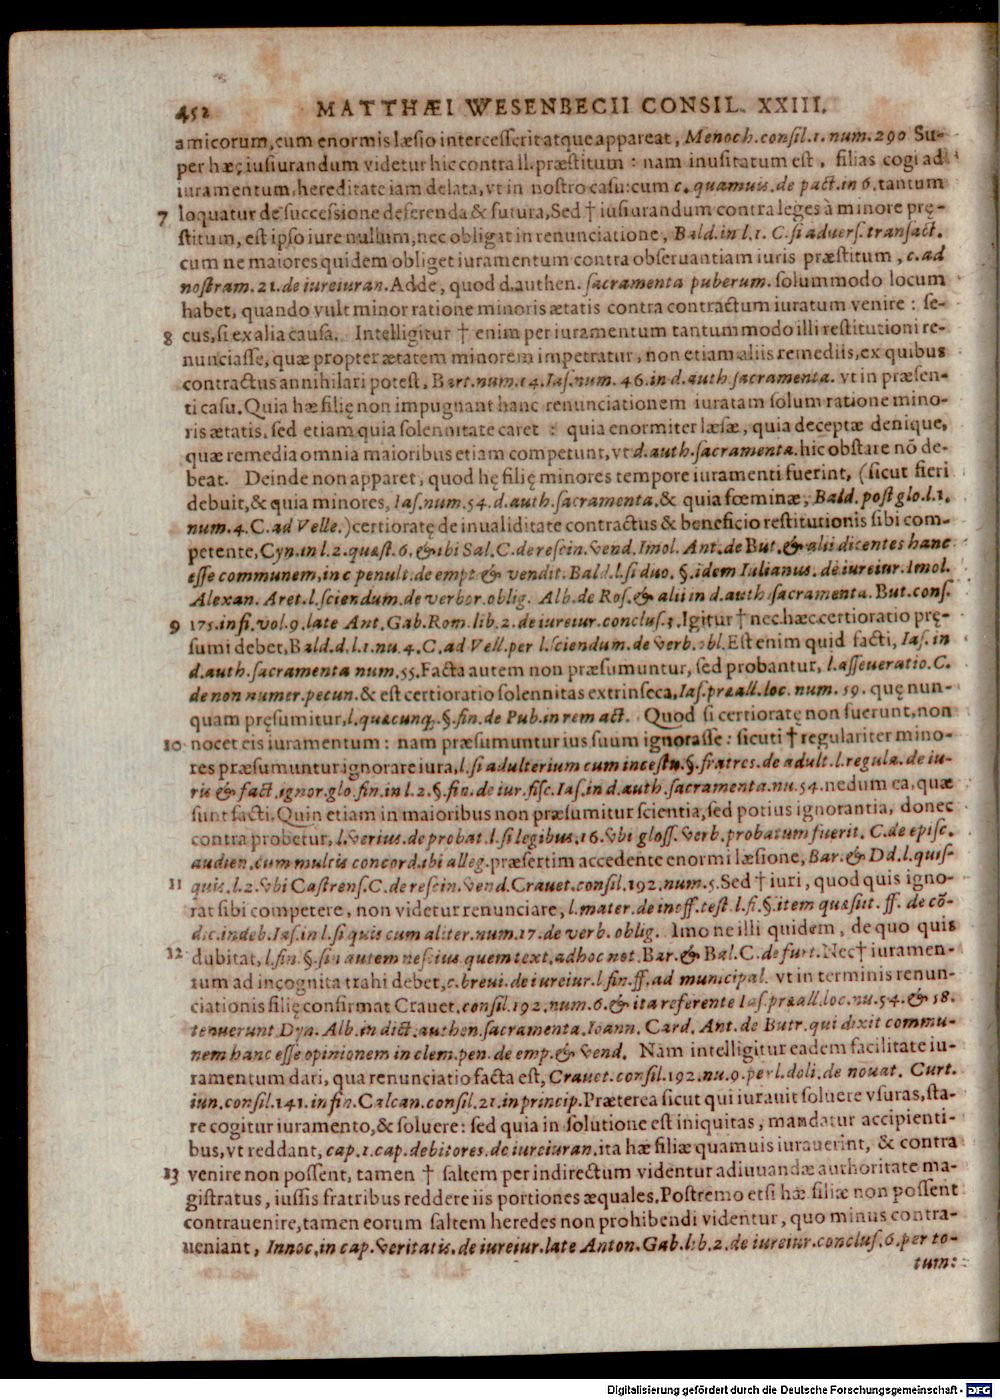 452 MATTHÆI WESENBECII CONSIL. XXIII.
amicorum, cum enormis læsio intercesserit atque appareat, Menoch. consil. 1. num. 290 Su-
per hæc iusiurandum videtur hic contra ll. præstitum : nam inusitatum est, filias cogi ad
iuramentum, hereditate iam delata, vt in nostro casu: cum c. quamuis. de pact. in 6. tantum
7 loquatur de successione deferenda & futura, Sed † iusiurandum contra leges à minore prę-
stitum, est ipso iure nullum, nec obligat in renunciatione, Bald. in l. 1. C. si aduers. transact.
cum ne maiores quidem obliget iuramentum contra obseruantiam iuris præstitum, c. ad
nostram. 21. de iureiuran. Adde, quod d. authen. sacramenta puberum. solummodo locum
habet, quando vult minor ratione minoris ætatis contra contractum iuratum venire : se-
8 cus, si ex alia causa. Intelligitur † enim per iuramentum tantummodo illi restitutioni re-
nunciasse, quæ propter ætatem minorem impetratur, non etiam aliis remediis, ex quibus
contractus annihilari potest, Bart. num. 14. Ias. num. 46. in d. auth sacramenta. vt in præsen-
ti casu. Quia hæ filię non impugnant hanc renunciationem iuratam solum ratione mino-
ris ætatis, sed etiam quia solennitate caret : quia enormiter læsæ, quia deceptæ denique,
quæ remedia omnia maioribus etiam competunt, vt d. auth. sacramenta. hic obstare nō de-
beat. Deinde non apparet, quod hę filię minores tempore iuramenti fuerint, (sicut fieri
debuit, & quia minores, Ias. num. 54. d. auth. sacramenta. & quia fœminæ, Bald. post glo. l. 1.
num. 4. C. ad Velle.) certioratę de inualiditate contractus & beneficio restitutionis sibi com-
petente, Cyn. in l. 2. quæst. 6. & ibi Sal. C. de rescin. vend. Imol. Ant. de But. & alii dicentes hanc
esse communem, in c penult. de empt & vendit. Bald. l. si duo. §. idem Iulianus. de iureiur. Imol.
Alexan. Aret. l. sciendum. de verbor. oblig. Alb. de Ros. & alii in d. auth. sacramenta. But. cons.
9 175. infi. vol. 9. late Ant. Gab. Rom. lib. 2. de iureiur. conclus. 3. Igitur † nec hæc certioratio prę-
sumi debet, Bald. d. l. 1. nu. 4. C. ad Vell. per l. sciendum. de verb. obl. Est enim quid facti, Ias. in
d. auth. sacramenta num. 55. Facta autem non præsumuntur, sed probantur, l. asseueratio. C.
de non numer. pecun. & est certioratio solennitas extrinseca, Ias. præall. loc. num. 59. quę nun-
quam pręsumitur, l. quæcunq;. §. fin. de Pub. in rem act. Quod si certioratę non fuerunt, non
10 nocet eis iuramentum : nam præsumuntur ius suum ignorasse : sicuti † regulariter mino-
res præsumuntur ignorare iura, l. si adulterium cum incestu. §. fratres. de adult. l. regula. de iu-
ris & fact. ignor. glo. fin. in l. 2. §. fin. de iur. fisc. Ias. in d. auth. sacramenta. nu. 54. nedum ea, quæ
sunt facti. Quin etiam in maioribus non præsumitur scientia, sed potius ignorantia, donec
contra probetur, l. verius. de probat. l. si legibus. 16. vbi gloss. verb. probatum fuerit. C. de episc.
audien. cum multis concord. ibi alleg. præsertim accedente enormi læsione, Bar. & Dd. l. quis-
11 quis. l. 2. vbi Castrens. C. de rescin. vend. Crauet. consil. 192. num. 5. Sed † iuri, quod quis igno-
rat sibi competere, non videtur renunciare, l. mater. de inoff. test l. fi. §. item quæsiit. ff. de cō-
dic. indeb. Ias. in l. si quis cum aliter. num. 17. de verb. oblig. Imo ne illi quidem, de quo quis
12 dubitat, l. fin. §. sin autem nescius. quem text. ad hoc not. Bar. & Bal. C. de furt. Nec † iuramen-
tum ad incognita trahi debet, c. breui. de iureiur. l. fin. ff. ad municipal. vt in terminis renun-
ciationis filię confirmat Crauet. consil. 192. num. 6. & ita referente Ias. præall. loc. nu. 54. & 58.
tenuerunt Dyn. Alb. in dict. authen. sacramenta. Ioann. Card. Ant. de Butr. qui dixit commu-
nem hanc esse opinionem in clem. pen. de emp. & vend. Nam intelligitur eadem facilitate iu-
ramentum dari, qua renunciatio facta est, Crauet. consil. 192. nu. 9. per l. doli. de nouat. Curt.
iun. consil. 141. in fin. Calcan. consil. 21. in princip. Præterea sicut qui iurauit soluere vsuras, sta-
re cogitur iuramento, & soluere : sed quia in solutione est iniquitas, mandatur accipienti-
bus, vt reddant, cap. 1. cap. debitores. de iureiuran. ita hæ filiæ quamuis iurauerint, & contra
13 venire non possent, tamen † saltem per indirectum videntur adiuuandæ authoritate ma-
gistratus, iussis fratribus reddere iis portiones æquales. Postremo etsi hæ filiæ non possent
contrauenire, tamen eorum saltem heredes non prohibendi videntur, quo minus contra-
ueniant, Innoc. in cap. veritatis. de iureiur. late Anton. Gab. lib. 2. de iureiur. conclus. 6. per to-
tum:
Digitalisierung gefördert durch die Deutsche Forschungsgemeinschaft - DFG